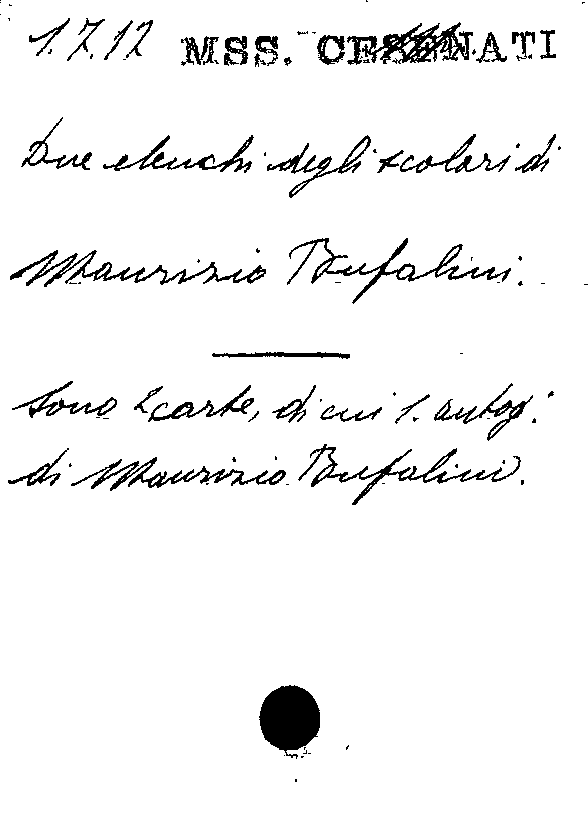 1.7.12 MSS. CESENATI
Due elenchi degli scolari di
Maurizio Bufalini.
Sono 2 carte, di cui 1. autog.
di Maurizio Bufalini.